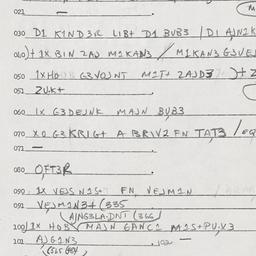 021 —
030 D1 KIND3R LIBT D1 BUB3 / D1 AJN1K
040 )+ 1X BIN ZAJ M1KAN3 / M1KAN3 G3VEJ
050 1X HOB G3VOJNT M1T+ ZAJD3 )+Z
051 ZUK+
060 1X G3DEJNK MAJN BUB3
070 XO G3KRIG+ A BR1V2 FN TAT3 / EQ
071 —
080 OFT3R
090 1X VEJS N1S+ FN VEJM1N
091 VEJM1N3+ (335
AJNG3LA-DNT (366)
100 )1X HOB MAJN GANC1 M1S+PU,V3
101 AJG1N3 102 —